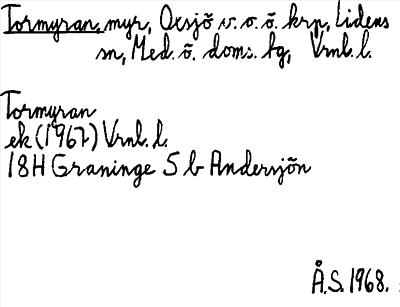 Tormyran, myr, Oxsjö v. o. ö. krp, Lidens
sn, Med. ö. doms. bg, Vrnl. l.
Tormyran
ek (1967) Vrnl. l.
18H Graninge S b Andersjön
Å.S. 1968.